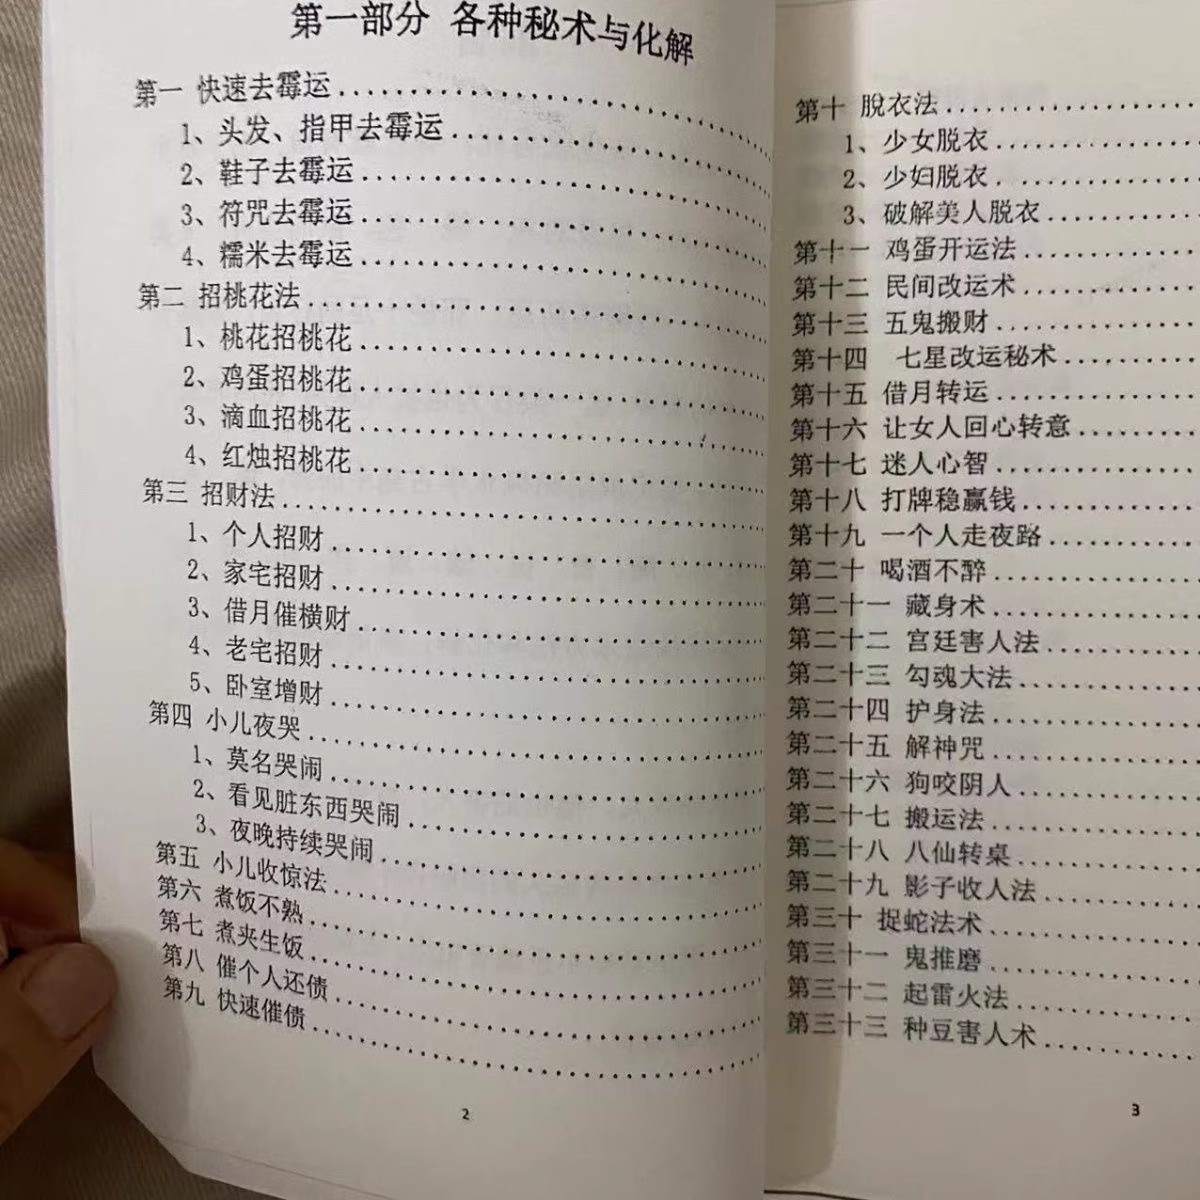 第一部分 各种秘术与化解
第一 快速去霉运
1、头发、指甲去霉运
2、鞋子去霉运
3、符咒去霉运
4、糯米去霉运
第二 招桃花法
1、桃花招桃花
2、鸡蛋招桃花
3、滴血招桃花
4、红烛招桃花
第三 招财法
1、个人招财
2、家宅招财
3、借月催横财
4、老宅招财
5、卧室增财
第四 小儿夜哭
1、莫名哭闹
2、看见脏东西哭闹
3、夜晚持续哭闹
第五 小儿收惊法
第六 煮饭不熟
第七 煮夹生饭
第八 催个人还债
第九 快速催债
2
第十 脱衣法
1、少女脱衣
2、少妇脱衣
3、破解美人脱衣
第十一 鸡蛋开运法
第十二 民间改运术
第十三 五鬼搬财
第十四 七星改运秘术
第十五 借月转运
第十六 让女人回心转意
第十七 迷人心智
第十八 打牌稳赢钱
第十九 一个人走夜路
第二十 喝酒不醉
第二十一 藏身术
第二十二 宫廷害人法
第二十三 勾魂大法
第二十四 护身法
第二十五 解神咒
第二十六 狗咬阴人
第二十七 搬运法
第二十八 八仙转桌
第二十九 影子收人法
第三十 捉蛇法术
第三十一 鬼推磨
第三十二 起雷火法
第三十三 种豆害人术
3